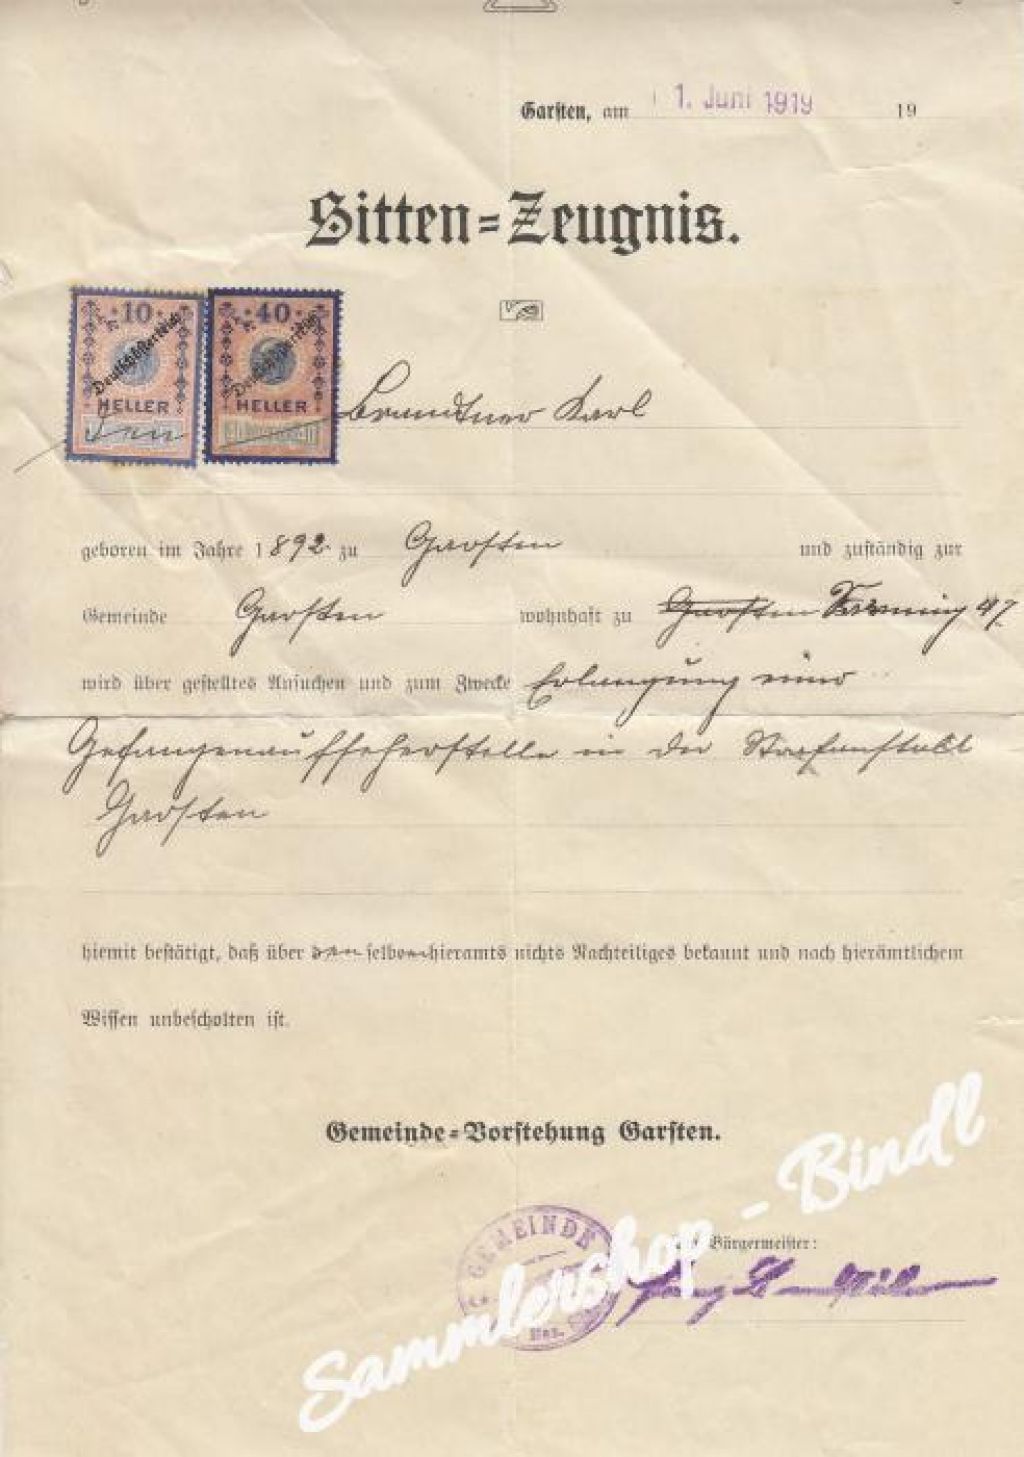 Garsten, am 1. Juni 1919 19
Sitten=Zeugnis.
10 Deutschösterreich HELLER
40 Deutschösterreich HELLER
Brandtner Karl
geboren im Jahre 1892 zu Garsten und zuständig zur
Gemeinde Garsten wohnhaft zu Garsten 97
wird über gestelltes Ansuchen und zum Zwecke Erlangung einer
Gefangenaufseherstelle in der Strafanstalt
Garsten
hiemit bestätigt, daß über denselben hieramts nichts Nachteiliges bekannt und nach hierämtlichem
Wissen unbescholten ist.
Gemeinde=Vorstehung Garsten.
GEMEINDE
Bürgermeister:
Sammlershop - Bindl